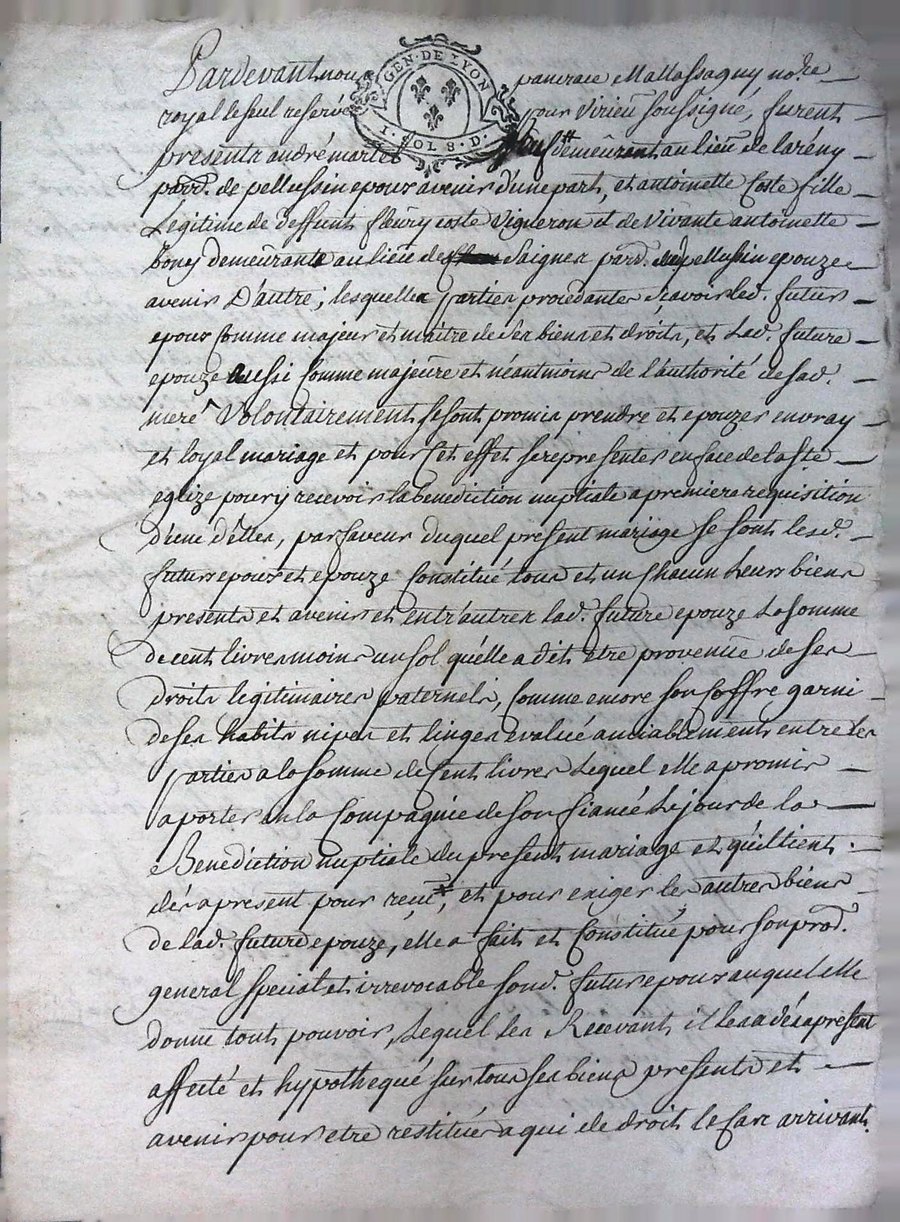 Pardevant nous pancrace Mallassagny nore
royal le seul reservé pour Virieu soussigné, furent
GEN · DE LYON
1 · SOL 8 · D ·
presents andré martel demeurant au lieu de larény
parr. de pellussin epoux avenir d'une part, et antoinette Coste fille
Legitime de deffunt fleury coste Vigneron et de Vivante antoinette
Boney demeurante au lieu de Saignes parr. pellussin epouze
avenir D'autre; lesquelles parties procedantes Scavoir led. futur
epoux comme majeur et maitre de ses biens et droits, et Lad. future
epouze aussi Comme majeure et néantmoins de l'authorité de sad.
mere Volontairement se sont promis prendre et epouzer en vray
et loyal mariage et pour cet effet se representer en face de la ste
eglize pour y recevoir la benediction nuptiale a premiere requisition
D'eune d'elles, par faveur duquel present mariage se sont lesd.
futurs epoux et epouze Constitué tous et un Chacun Leurs biens
presents et avenir et entr'autres lad. future epouze La somme
de cent livres moins un sol qu'elle a dit etre provenüe de ses
droits legitimaires paternels, Comme encore son Coffre garni
de ses habits nipes et linges evalué amiablement entre Les
parties a la somme de Cent livres Lequel elle a promis
aporter en la Compagnie de son fiancé Le jour de la
Benediction nuptiale du present mariage et qu'il tient
dés a present pour reçu, et pour exiger les autres biens
de lad. future epouze, elle a fait et Constitué pour son prod.
general special et irrevocable sond. futur epoux auquel elle
donne tout pouvoir, Lequel Les Recevant il les a dés a present
affecté et hypothequé sur tous ses biens presents et
avenir pour etre restitués a qui de droit le Cas arrivant